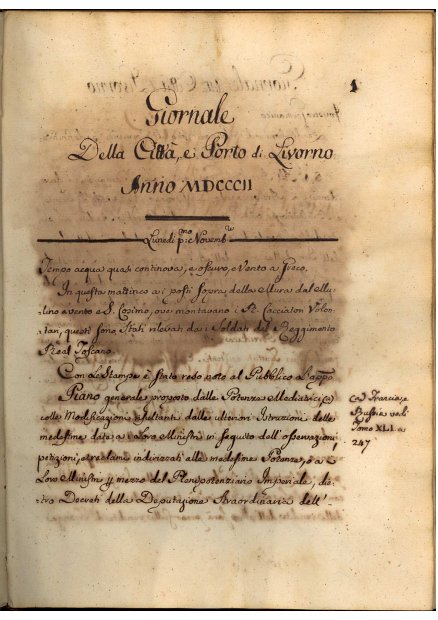 1
Giornale
Della Città, e Porto di Livorno
Anno MDCCCII
Lunedì p:mo Novemb:e
Tempo acqua quasi continova, e oscuro, e Vento a Greco.
In questa mattina a i posti sopra della Mura dal Mu-
lino a vento e S. Cosimo, ove montavano i R. Cacciatori Volon-
tari, questi sono stati rilevati da i Soldati del Reggimento
Real Toscano.
Con le Stampe è stato reso noto al Pubblico il
Piano generale proposto dalle Potenze Mediatrici (a)
colle Modificazioni risultanti dalle ulteriori Istruzioni delle
medesime data a i Loro Ministri in seguito dell'osservazioni
petizioni, e reclami indirizzati alle medesime Potenze, o a i
Loro Ministri p mezzo del Plenipotenziario Imperiale, die-
tro Decreti della Deputazione Straordinaria dell'
(a) Francia, e
Russia vedi
Tomo XLI. a
247